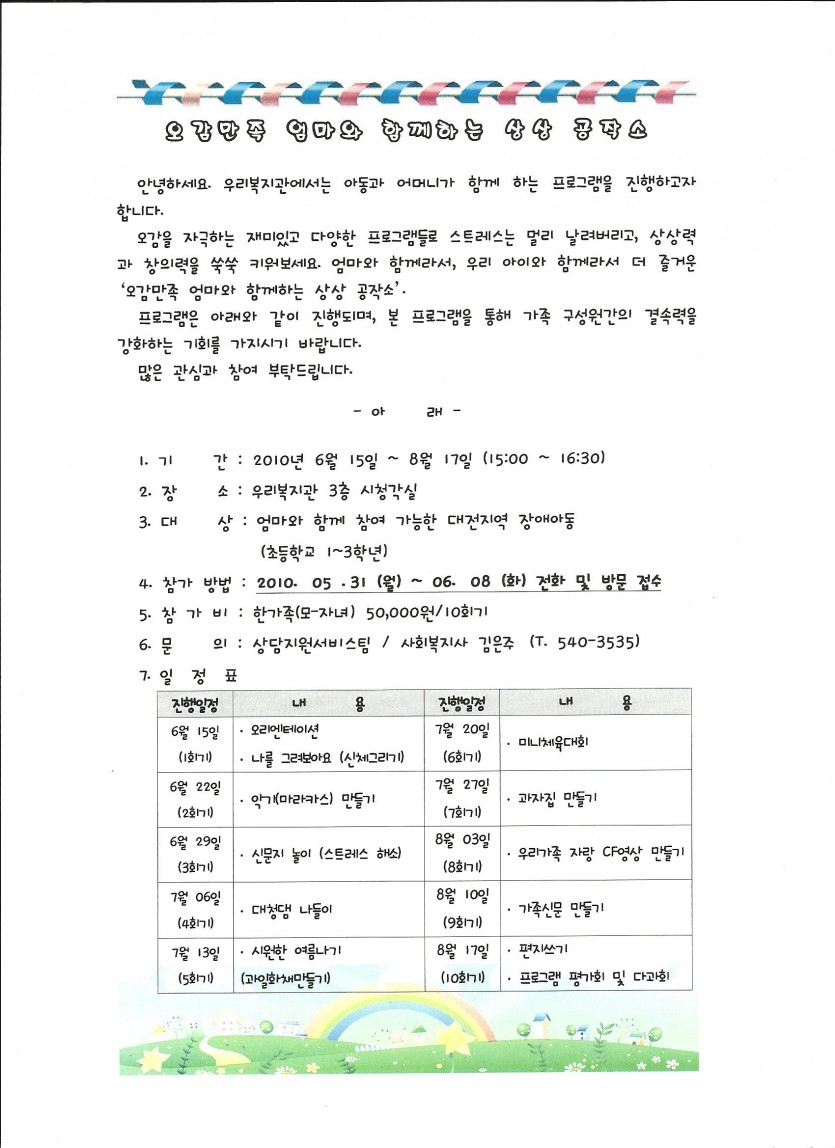 오감만족 엄마와 함께하는 상상 공작소
안녕하세요. 우리복지관에서는 아동과 어머니가 함께 하는 프로그램을 진행하고자
합니다.
오감을 자극하는 재미있고 다양한 프로그램들로 스트레스는 멀리 날려버리고, 상상력
과 창의력을 쑥쑥 키워보세요. 엄마와 함께라서, 우리 아이와 함께라서 더 즐거운
‘오감만족 엄마와 함께하는 상상 공작소’.
프로그램은 아래와 같이 진행되며, 본 프로그램을 통해 가족 구성원간의 결속력을
강화하는 기회를 가지시기 바랍니다.
많은 관심과 참여 부탁드립니다.
- 아 래 -
1. 기 간 : 2010년 6월 15일 ~ 8월 17일 (15:00 ~ 16:30)
2. 장 소 : 우리복지관 3층 시청각실
3. 대 상 : 엄마와 함께 참여 가능한 대전지역 장애아동
(초등학교 1~3학년)
4. 참가 방법 : 2010. 05 .31 (월) ~ 06. 08 (화) 전화 및 방문 접수
5. 참 가 비 : 한가족(모-자녀) 50,000원/10회기
6. 문 의 : 상담지원서비스팀 / 사회복지사 김은주 (T. 540-3535)
7. 일 정 표
진행일정 내 용 진행일정 내 용
6월 15일 · 오리엔테이션 7월 20일 · 미니체육대회
(1회기) · 나를 그려보아요 (신체그리기) (6회기)
6월 22일 · 악기(마라카스) 만들기 7월 27일 · 과자집 만들기
(2회기) (7회기)
6월 29일 · 신문지 놀이 (스트레스 해소) 8월 03일 · 우리가족 자랑 CF영상 만들기
(3회기) (8회기)
7월 06일 · 대청댐 나들이 8월 10일 · 가족신문 만들기
(4회기) (9회기)
7월 13일 · 시원한 여름나기 8월 17일 · 편지쓰기
(5회기) (과일화채만들기) (10회기) · 프로그램 평가회 및 다과회